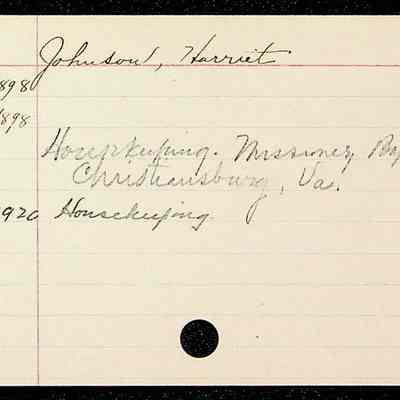 Johnson, Harriet
898
1898
Housekeeping. Missionary Bap
Christiansburg, Va.
1920 Housekeeping.